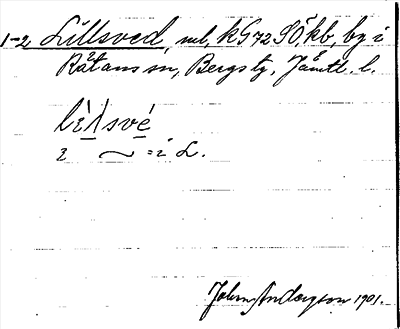 1-2 Lillsved, vid, kG72SÖ, kb, by i
Råtans sn, Bergs tg, Jämtl. l.
lìlsvé
2 ~ = i L.
John Anderson 1901.